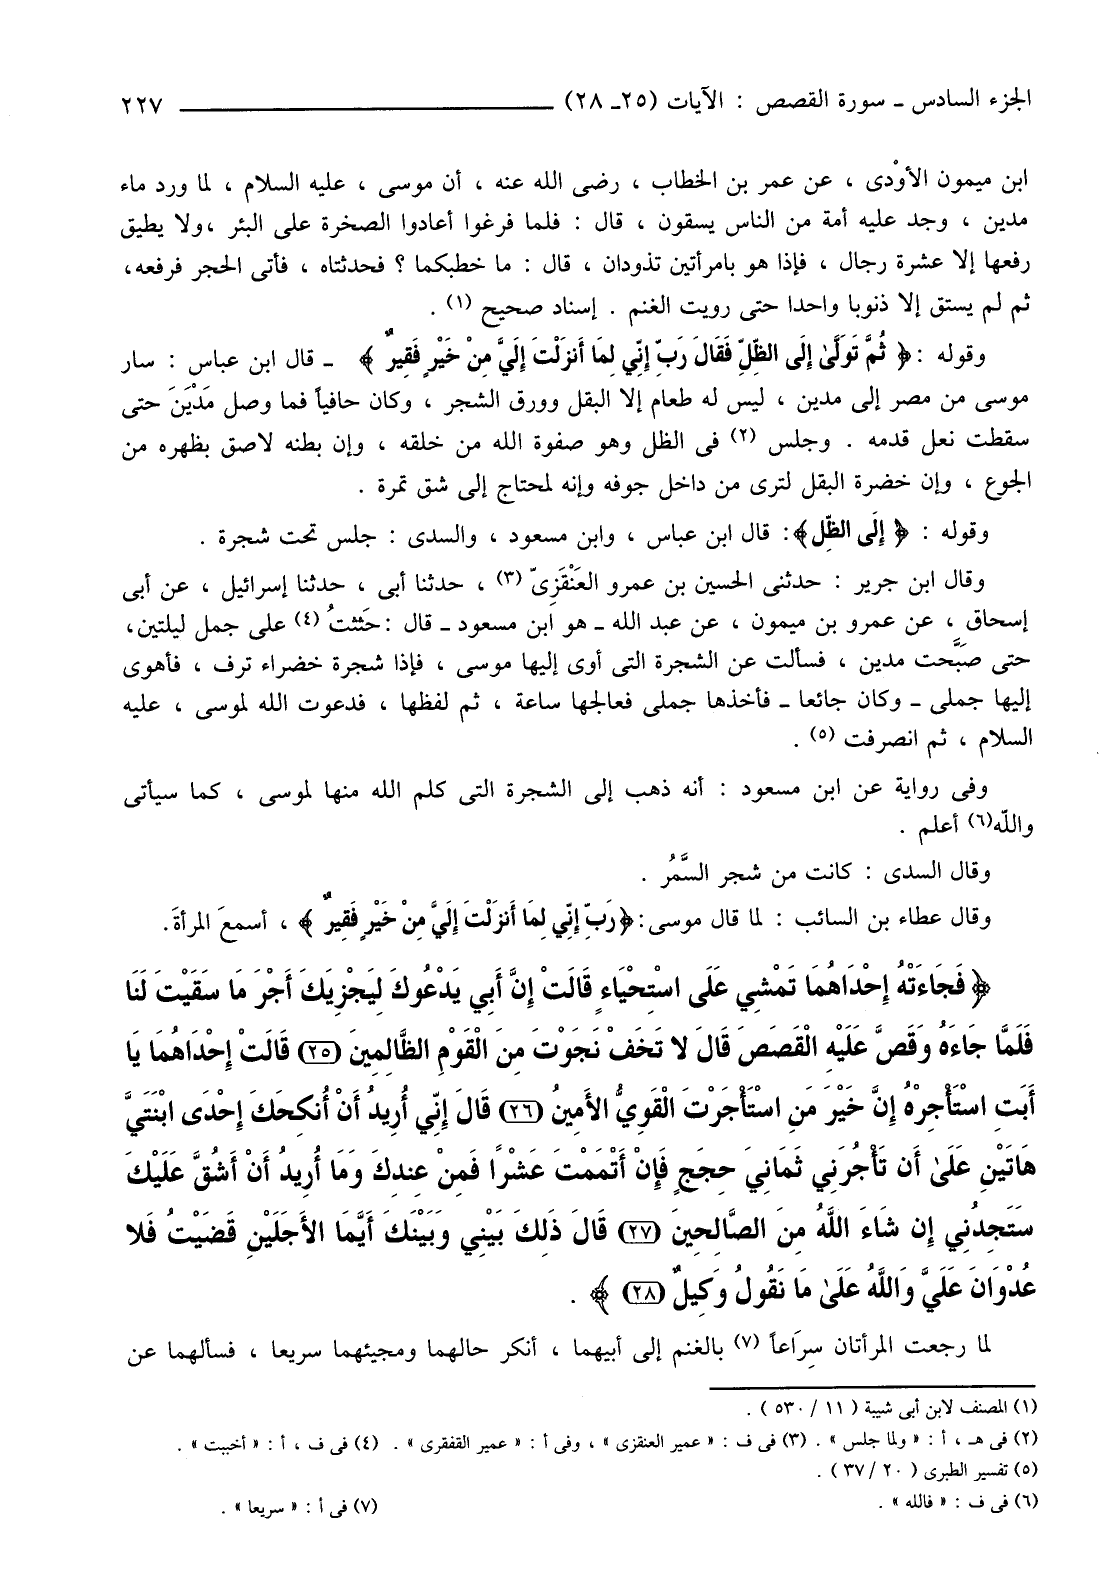 الجزء السادس ـ سورة القصص : الآيات (٢٥ـ ٢٨) ٢٢٧
ابن ميمون الأوْدى ، عن عمر بن الخطاب ، رضى الله عنه ، أن موسى ، عليه السلام ، لما ورد ماء
مدين ، وجد عليه أمة من الناس يسقون ، قال : فلما فرغوا أعادوا الصخرة على البئر ،ولا يطيق
رفعها إلا عشرة رجال ، فإذا هو بامرأتين تذودان ، قال : ما خطبكما ؟ فحدثتاه ، فأتى الحجر فرفعه،
ثم لم يستق إلا ذنوبا واحدا حتى رويت الغنم . إسناد صحيح (١) .
وقوله :﴿ ثُمَّ تَوَلَّىٰ إِلَى الظِّلِّ فَقَالَ رَبِّ إِنِّي لِمَا أَنزَلْتَ إِلَيَّ مِنْ خَيْرٍ فَقِيرٌ ﴾ ـ قال ابن عباس : سار
موسى من مصر إلى مدين ، ليس له طعام إلا البقل وورق الشجر ، وكان حافياً فما وصل مَدْيَنَ حتى
سقطت نعل قدمه . وجلس (٢) فى الظل وهو صفوة الله من خلقه ، وإن بطنه لاصق بظهره من
الجوع ، وإن خضرة البقل لترى من داخل جوفه وإنه لمحتاج إلى شق تمرة .
وقوله : ﴿ إِلَى الظِّل﴾: قال ابن عباس ، وابن مسعود ، والسدى : جلس تحت شجرة .
وقال ابن جرير : حدثنى الحسين بن عمرو العَنْقَزِىّ (٣) ، حدثنا أبى ، حدثنا إسرائيل ، عن أبى
إسحاق ، عن عمرو بن ميمون ، عن عبد الله ـ هو ابن مسعود ـ قال :حَثثتُ (٤) على جمل ليلتين،
حتى صَبَّحت مدين ، فسألت عن الشجرة التى أوى إليها موسى ، فإذا شجرة خضراء ترف ، فأهوى
إليها جملى ـ وكان جائعا ـ فأخذها جملى فعالجها ساعة ، ثم لفظها ، فدعوت الله لموسى ، عليه
السلام ، ثم انصرفت (٥) .
وفى رواية عن ابن مسعود : أنه ذهب إلى الشجرة التى كلم الله منها لموسى ، كما سيأتى
واللّه(٦) أعلم .
وقال السدى : كانت من شجر السَّمُر .
وقال عطاء بن السائب : لما قال موسى:﴿رَبِّ إِنِّي لِمَا أَنزَلْتَ إِلَيَّ مِنْ خَيْرٍ فَقِيرٌ ﴾ ، أسمعَ المرأةَ.
﴿ فَجَاءَتْهُ إِحْدَاهُمَا تَمْشِي عَلَى اسْتِحْيَاءٍ قَالَتْ إِنَّ أَبِي يَدْعُوكَ لِيَجْزِيَكَ أَجْرَ مَا سَقَيْتَ لَنَا
فَلَمَّا جَاءَهُ وَقَصَّ عَلَيْهِ الْقَصَصَ قَالَ لا تَخَفْ نَجَوْتَ مِنَ الْقَوْمِ الظَّالِمِينَ (٢٥) قَالَتْ إِحْدَاهُمَا يَا
أَبَتِ اسْتَأْجِرْهُ إِنَّ خَيْرَ مَنِ اسْتَأْجَرْتَ الْقَوِيُّ الأَمِينُ (٢٦) قَالَ إِنِّي أُرِيدُ أَنْ أُنكِحَكَ إِحْدَى ابْنَتَيَّ
هَاتَيْنِ عَلَىٰ أَن تَأْجُرَنِي ثَمَانِيَ حِجَجٍ فَإِنْ أَتْمَمْتَ عَشْرًا فَمِنْ عِندِكَ وَمَا أُرِيدُ أَنْ أَشُقَّ عَلَيْكَ
سَتَجِدُنِي إِن شَاءَ اللَّهُ مِنَ الصَّالِحِينَ (٢٧) قَالَ ذَلِكَ بَيْنِي وَبَيْنَكَ أَيَّمَا الأَجَلَيْنِ قَضَيْتُ فَلا
عُدْوَانَ عَلَيَّ وَاللَّهُ عَلَىٰ مَا نَقُولُ وَكِيلٌ (٢٨) ﴾ .
لما رجعت المرأتان سِرَاعاً (٧) بالغنم إلى أبيهما ، أنكر حالهما ومجيئهما سريعا ، فسألهما عن
(١) المصنف لابن أبى شيبة ( ١١ / ٥٣٠ ) .
(٢) فى هـ ، أ : « ولما جلس » . (٣) فى ف : « عمير العنقزى » ، وفى أ : « عمير القفقرى » . (٤) فى ف ، أ : « أخببت » .
(٥) تفسير الطبرى ( ٢٠ / ٣٧ ) .
(٦) فى ف : « فالله » . (٧) فى أ : « سريعا » .